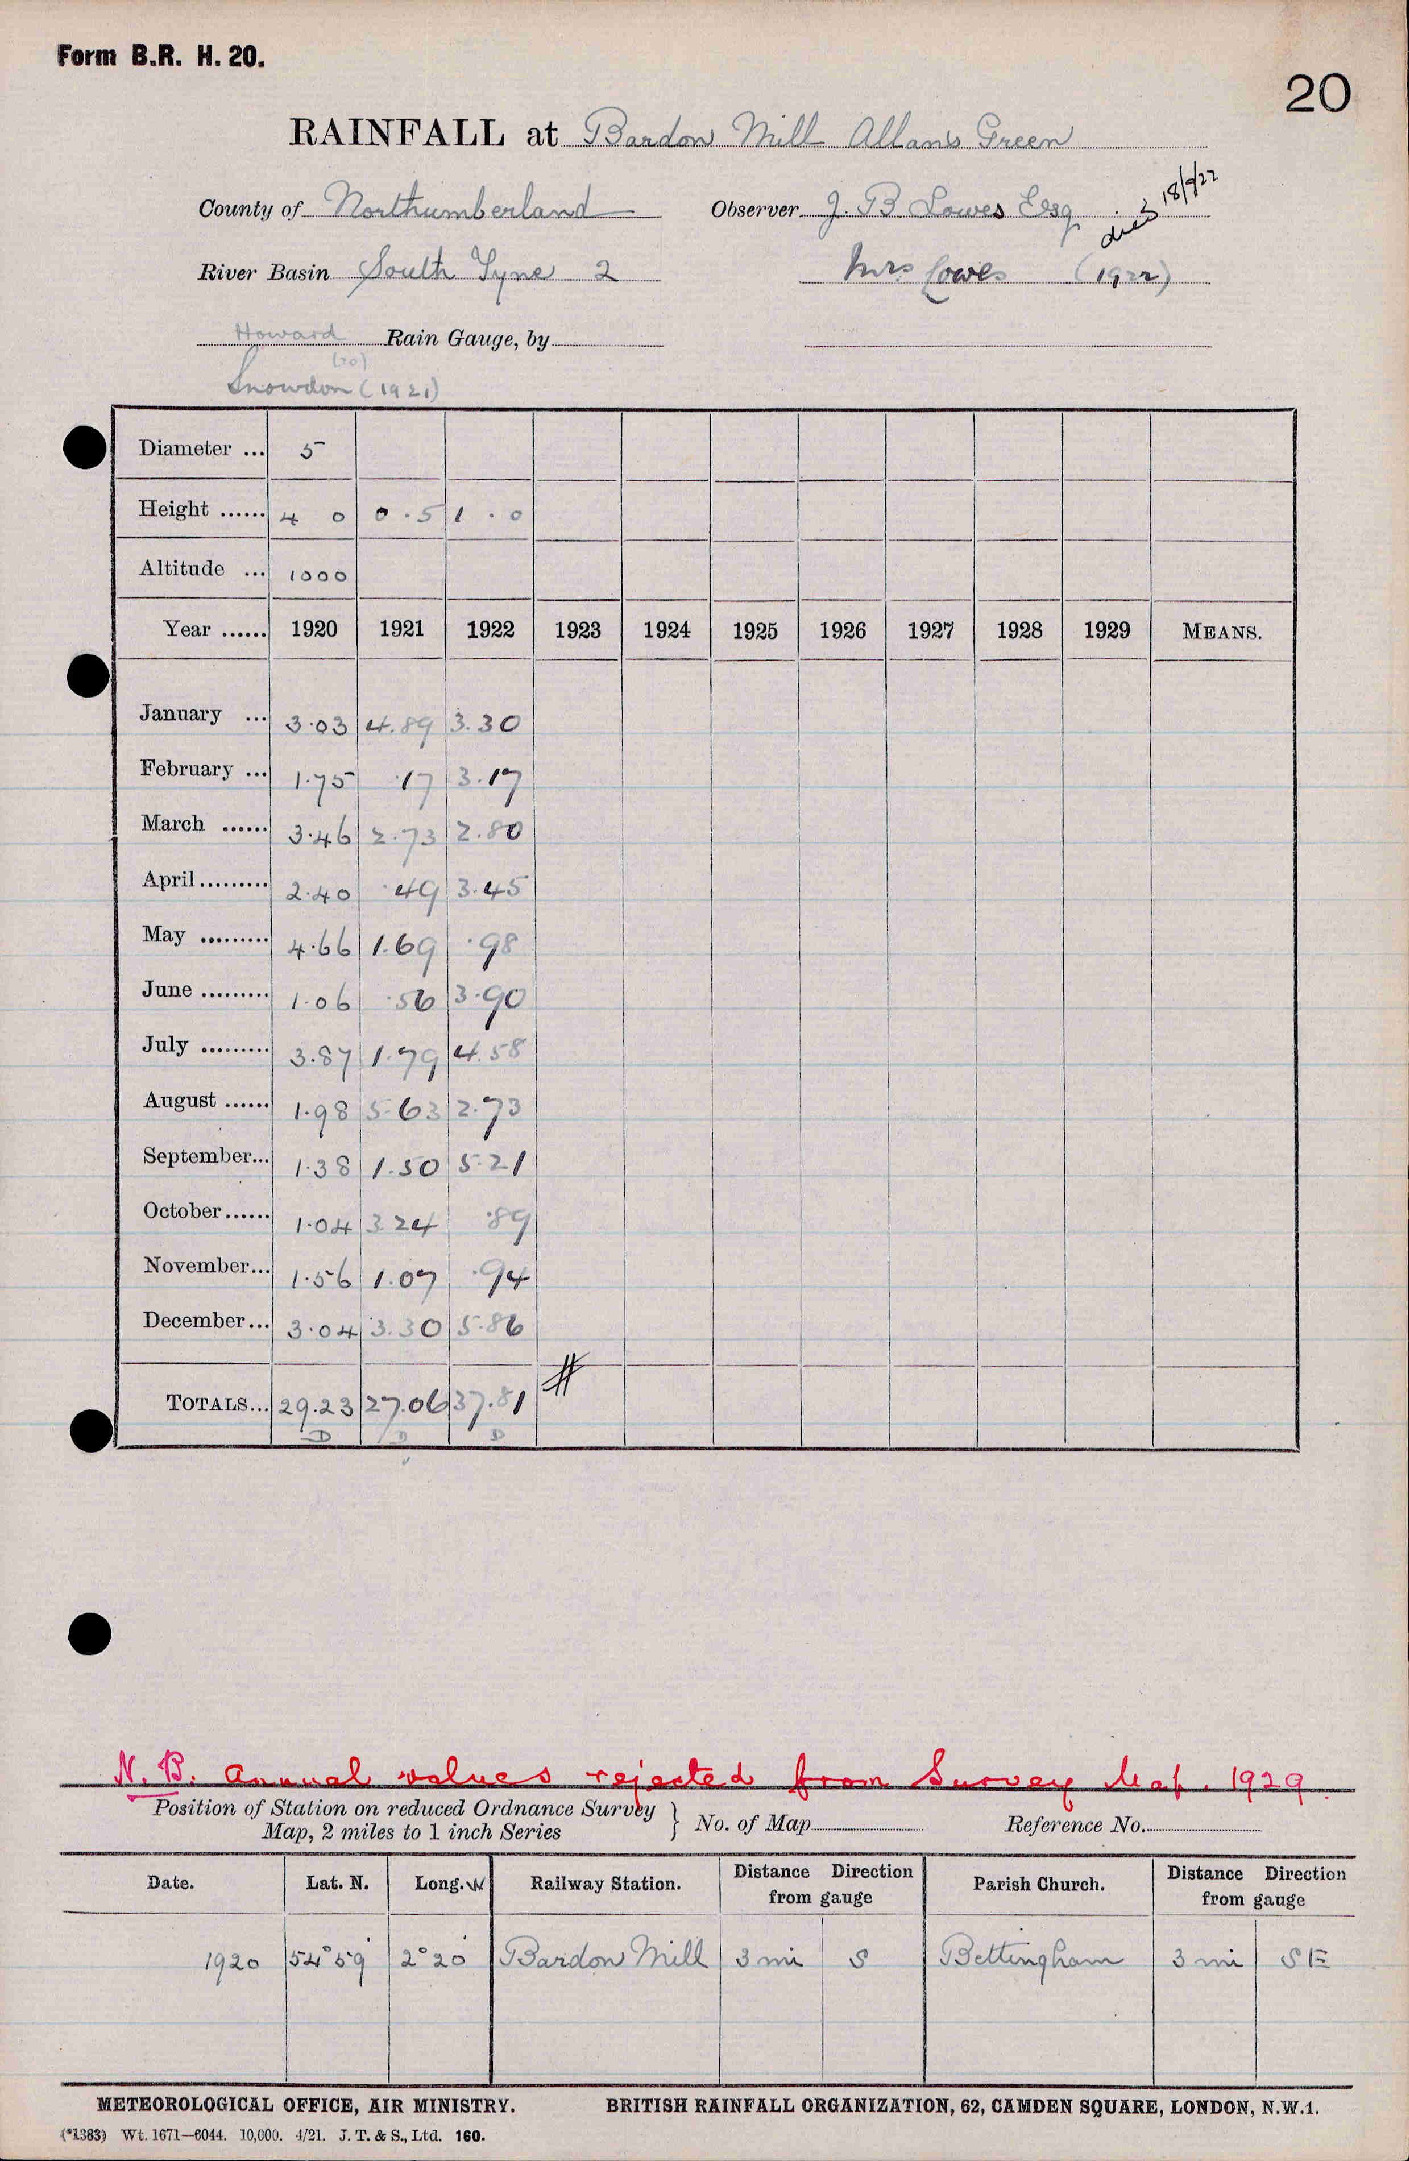 Form B.R. H. 20.
20
RAINFALL at Bardon Mill Allans Green
County of Northumberland Observer J. B Lowes Esq died 18/9/22
River Basin South Tyne 2 Mrs Lowes (1922)
Howard Rain Gauge, by
(20)
Snowdon (1921)
Diameter ... 5
Height ...... 4 0 0.5 1.0
Altitude ... 1000
Year ...... 1920 1921 1922 1923 1924 1925 1926 1927 1928 1929 MEANS.
January ... 3.03 4.89 3.30
February ... 1.75 .17 3.17
March ...... 3.46 2.73 2.80
April ......... 2.40 .49 3.45
May ......... 4.66 1.69 .98
June ......... 1.06 .56 3.90
July ......... 3.87 1.79 4.58
August ...... 1.98 5.63 2.73
September... 1.38 1.50 5.21
October ...... 1.04 3.24 .89
November... 1.56 1.07 .94
December... 3.04 3.30 5.86
TOTALS... 29.23 27.06 37.81 #
D D D
N. B. Annual values rejected from Survey Map. 1929.
Position of Station on reduced Ordnance Survey Map, 2 miles to 1 inch Series } No. of Map Reference No.
Date. Lat. N. Long. W Railway Station. Distance Direction from gauge Parish Church. Distance Direction from gauge
1920 54°59' 2°20' Bardon Mill 3 mi S Bettingham 3 mi SE
METEOROLOGICAL OFFICE, AIR MINISTRY. BRITISH RAINFALL ORGANIZATION, 62, CAMDEN SQUARE, LONDON, N.W.1.
(*1383) Wt. 1671—6044. 10,000. 4/21. J. T. & S., Ltd. 160.